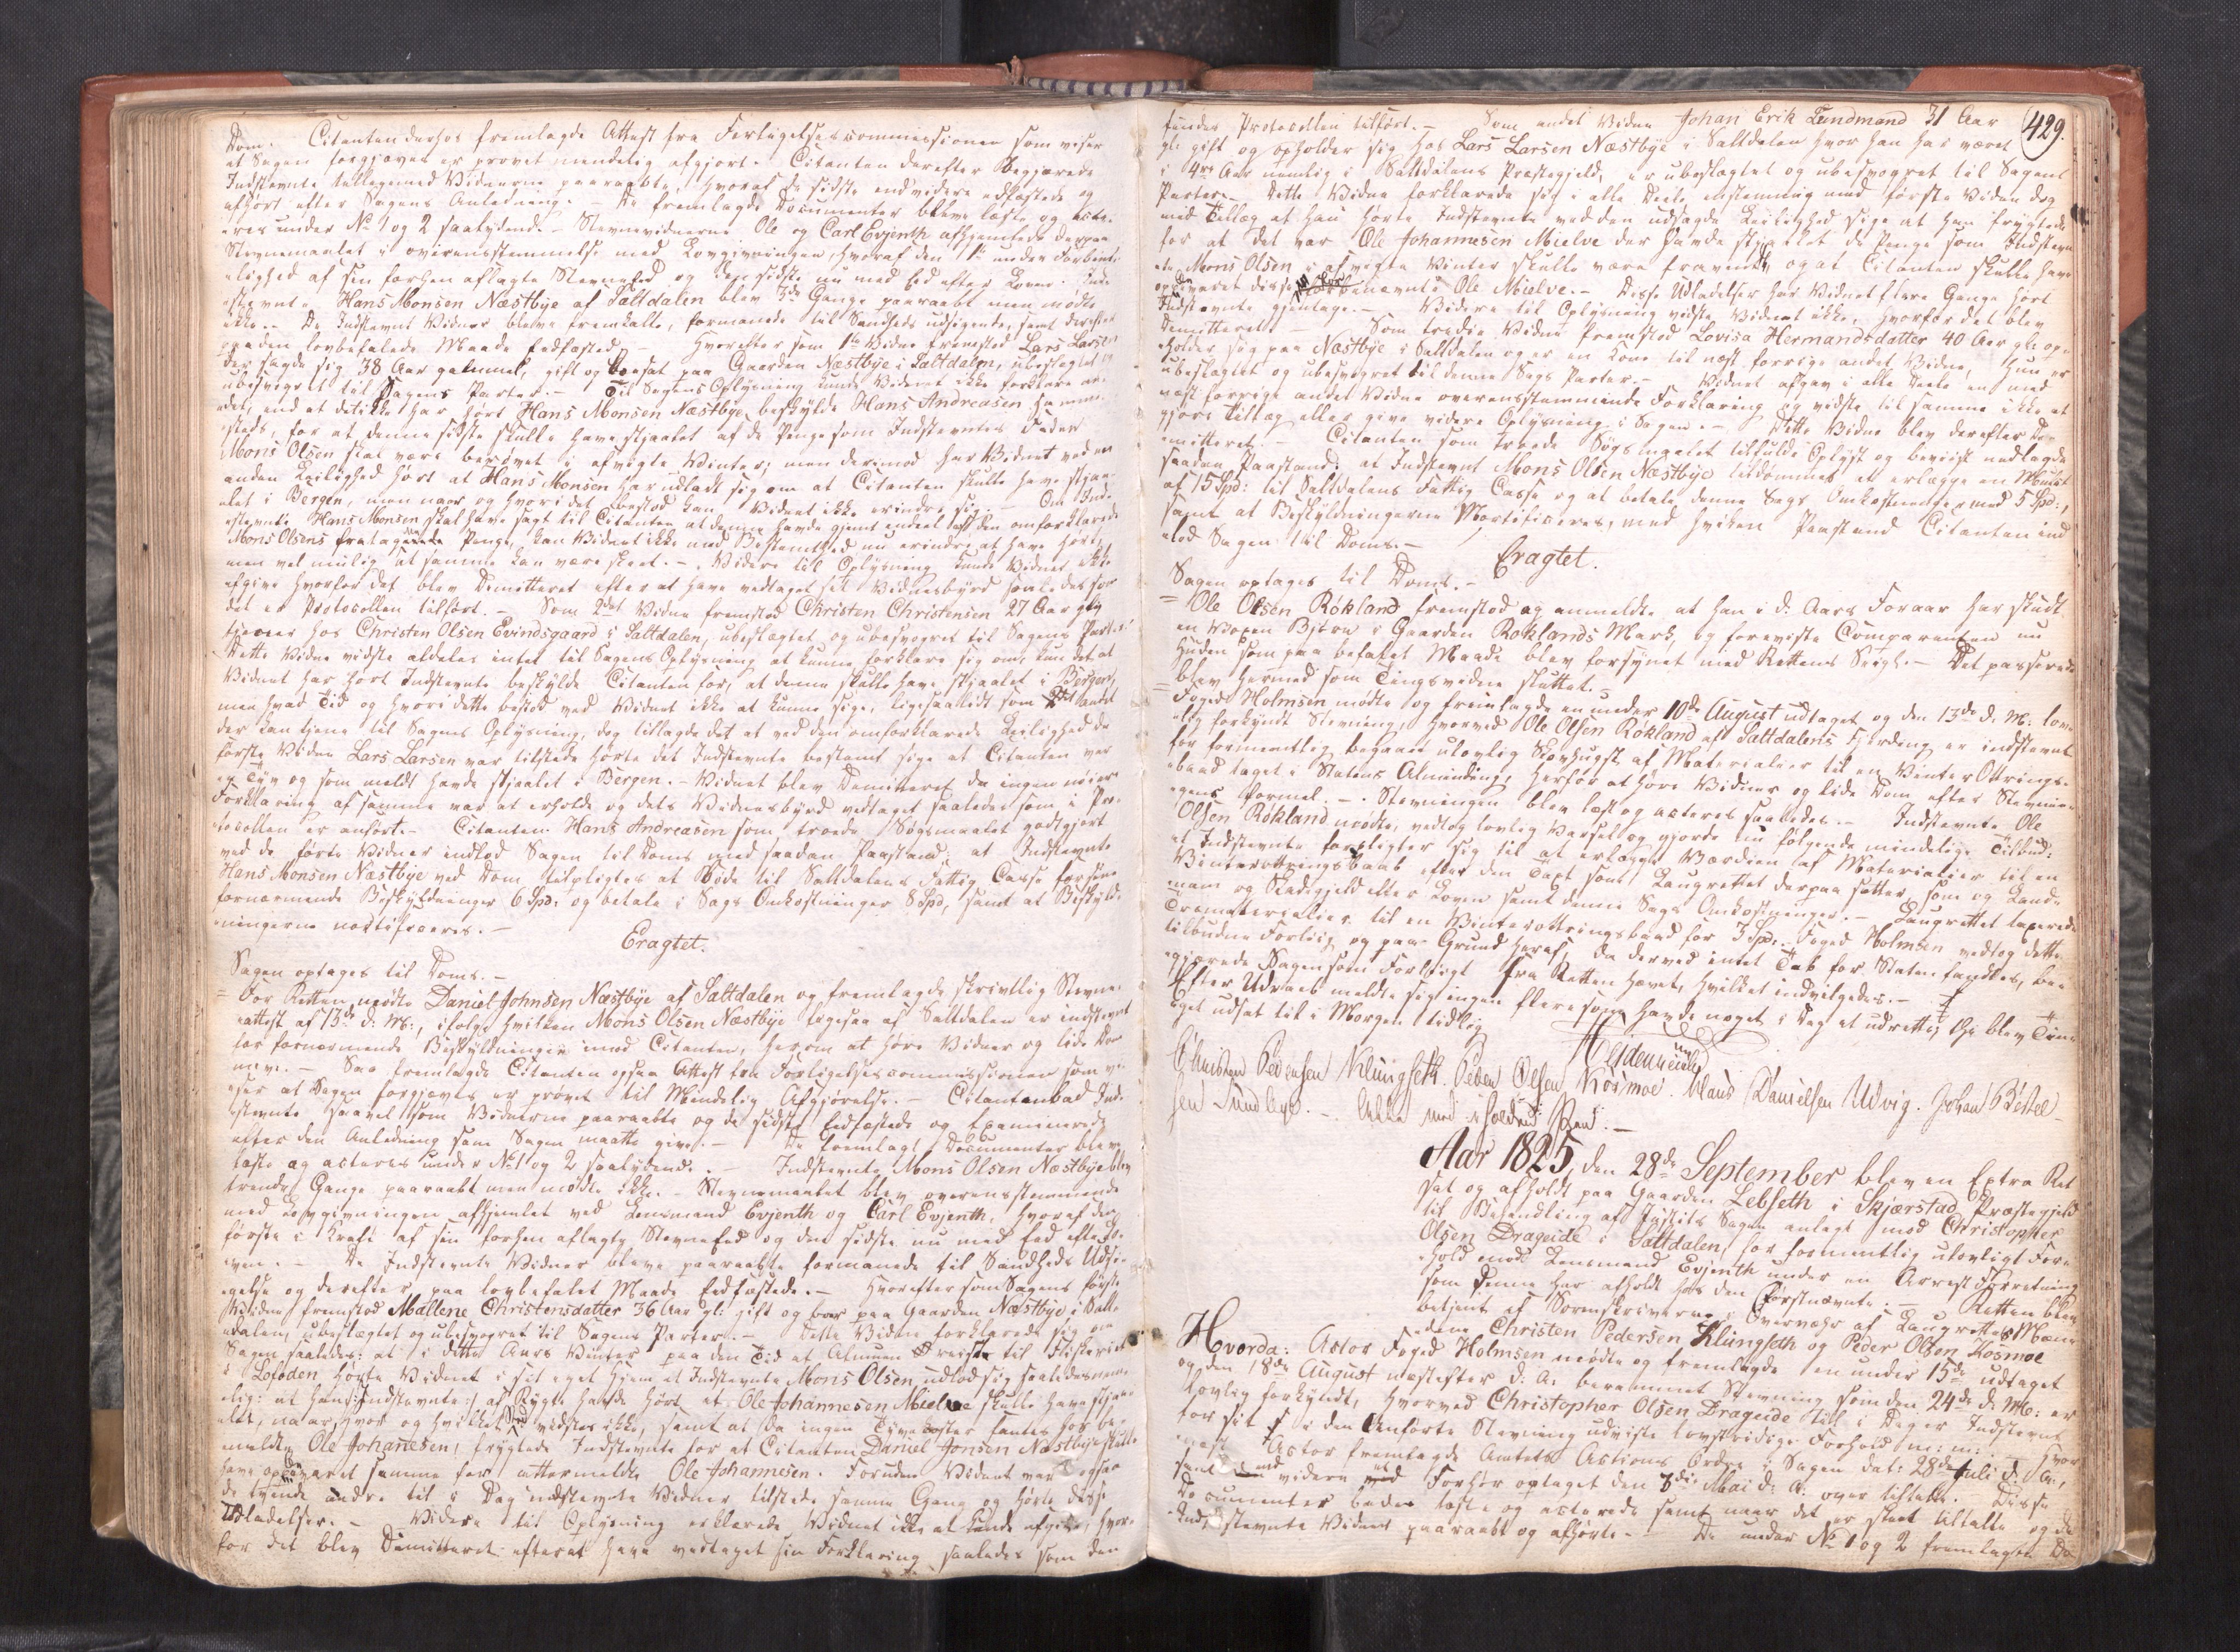 Dom. Citanten derhos fremlagde Attest fra Forligelsescommissionen som viser
at Sagen forgjæves er prøvet mindelig afgjort. Citanten derefter begjærede
Indstevnte tilligemed Vidnerne paaraabte, hvoraf de sidste endvidere edfæstede og
afhørt efter Sagens Anledning. - De fremlagde Documenter bleve læste og acte-
eres under No 1 og 2 saalydende. - Stevnevidnerne Ole og Carl Evjenth afhjemlede derpaa
Stevnemaalet i overensstemmelse med Lovgivningen, hvoraf den 1te under Forbinde-
elighed af sin forhen aflagte Stevneed og den sidste nu med Eed efter Loven. Ind-
stevnte Hans Monsen Næstbye af Saltdalen blev 3de Gange paaraabt men mødte
ikke. - De Indstevnte Vidner bleve fremkaldte, formanede til Sandheds udsigende, samt derefter
paa den lovbefalede Maade Eedfæstede. - Hvorefter som 1te Vidne fremstod Lars Larsen
der sagde sig 38 Aar gammel, gift og boesat paa Gaarden Næstbye i Saltdalen, ubeslægtet og
ubesvogret til Sagens Parter. - Til Sagens Oplysning kunde Vidnet ikke forklare an-
det, end at det ikke har hørt Hans Monsen Næstbye beskylde Hans Andreasen
for at denne sidste skulle have stjaalet af de Penge som Indstevntes Fader
Mons Olsen skal være berøvet i afvigte Winter; men derimod har Vidnet ved en
anden Leilighed hørt at Hans Monsen har udladt sig om at Citanten skulle have stjaa-
alet i Bergen, men naar og hvori det bestod kan Vidnet ikke erindre sig. - Om Ind-
stevnte Hans Monsen skal have sagt til Citanten at denne havde gjemt endeel af den omforklarede
Mons Olsens fratagne Penge, kan Vidnet ikke med Bestemthed nu erindre at have hørt,
men vel mulig at samme kan være skeet. - Videre til Oplysning kunde Vidnet ikke
afgive hvorfor det blev Demitteret efter at have vedtaget sit Vidnesbyrd saaledes som
det er Protocollen tilført. - Som 2det Vidne fremstod Christen Christensen 27 Aar gl
tjener hos Christen Olsen Evindsgaard i Saltdalen, ubeslægtet og ubesvogret til Sagens Parter.
Dette Vidne vidste aldeles intet til Sagens Oplysning at kunne forklare sig om, kun det at
Vidnet har hørt Indstevnte beskylde Citanten for, at denne skulle have stjaalet i Bergen,
men hvad Tid og hvori dette bestod ved Vidnet ikke at kunne sige, ligesaalidt som andet
der kan tjene til Sagens Oplysning, dog tillagde det at ved den omforklarede Leilighed da
første Vidne Lars Larsen var tilstede hørte det Indstevnte bestemt sige at Citanten var
en Tyv og som meldt havde stjaalet i Bergen. - Vidnet blev Demitteret da ingen nøiere
Forklaring af samme var at erholde og dets Vidnesbyrd vedtaget saaledes som i Pro-
tocollen er anført. - Citanten Hans Andreasen som troede Søgsmaalet godtgjort
ved de førte Vidner indlod Sagen til Doms med saadan Paastand: at Indstevnte
Hans Monsen Næstbye ved Dom tilpligtes at bøde til Saltdalens Fattig Casse for sine
fornærmende Beskyldninger 6 Spd. og betale i Sags Omkostninger 8 Spd, samt at Beskyld-
ningerne mortificeres. -
Eragtet.
Sagen optages til Doms. -
= For Retten mødte Daniel Johnsen Næstbye af Saltdalen og fremlagde skrivtlig Stevne-
attest af 13de d: M:, ifølge hvilken Mons Olsen Næstbye ligesaa af Saltdalen er indstevnt
for fornærmende Beskyldninger imod Citanten, herom at høre Vidner og lide Dom
m.v. - Saa fremlagde Citanten ogsaa Attest fra Forligelsescommissionen som vi-
ser at Sagen forgjæves er prøvet til Mindelig Afgjørelse. - Citanten bad Ind-
stevnte saavel som Vidnerne paaraabte og de sidste Eedfæstede og Examinerede
efter den Anledning som Sagen maatte give. - De fremlagte Documenter bleve
læste og acteres under No 1 og 2 saalydende. - Indstevnte Mons Olsen Næstbye blev
trende Gange paaraabt men mødte ikke. - Stevnemaalet blev overensstemmende
med Lovgivningen afhjemlet ved Lensmand Evjenth og Carl Evjenth, hvoraf den
første i Kraft af sin forhen aflagte Stevneed og den sidste nu med Eed efter Lo-
ven. - De Indstevnte Vidner bleve paaraabte formanede til Sandheds Udsi-
gelse og derefter paa lovbefalet Maade Eedfæstede. - Hvorefter som Sagens første
Vidne fremstod Mallene Christensdatter 36 Aar gl: gift og boer paa Gaarden Næstbye i Salt-
dalen, ubeslægtet og ubesvogret til Sagens Parter. - Dette Vidne forklarede sig om
Sagen saaledes: at i dette Aars Winter paa den Tid at Almuen reiste til Fiskeriet
i Lofoden hørte Vidnet i sit eget Hjem at Indstevnte Mons Olsen udlod sig saaledes nem-
lig: at han |: Indstevnte :| af Rygte havde hørt at Ole Johannesen Mielve skulle have stjaa-
let, naar, hvor og hvilket vidstes ikke, samt at da ingen Tyvekoster fantes hos be-
meldte Ole Johannesen, frygtede Indstevnte for at Citanten Daniel Jonsen Næstbye skulle
have opbevaret samme for ættermeldte Ole Johannesen. Foruden Vidnet var ogsaa
de tvende andre til i Dag indstevnte Vidner tilstede samme Gang og hørte disse
Udladelser. - Videre til Oplysning erklærede Vidnet ikke at kunde afgive, hvor-
for det blev Dimitteret efterat have vedtaget sin Forklaring saaledes som den
429.
findes Protocollen tilført. - Som andet Vidne Johan Erik Lundmand 31 Aar
gl: gift og opholder sig hos Lars Larsen Næstbye i Saltdalen hvor han har været
i 4re Aar nemlig i Saltdalens Præstegjeld, er ubeslægtet og ubesvogret til Sagens
Parter. Dette Vidne forklarede sig i alle Deele enstemmig med første Vidne dog
med Tillæg at han hørte Indstevnte ved den udsagde Leilighed sige at han frygtede
for at det var Ole Johannesen Mielve der havde stjaalet de Penge som Indstevn
te Mons Olsen i afvigte Winter skulle være fravendt, og at Citanten skulle have
opbevaret disse for benævnte Ole Mielve. - Disse Udladelser har Vidnet flere Gange hørt
Indstevnte gjentage. - Videre til Oplysning vidste Vidnet ikke, hvorfor det blev
Demitteret. - Som tredie Vidne fremstod Lovisa Hermandsdatter 40 Aar gl: op-
holder sig paa Næstbye i Saltdalen og er en Kone til næst forrige andet Vidne, hun er
ubeslægtet og ubesvogret til denne Sags Parter. - Vidnet afgav i alle Deele en med
næst forrige andet Vidne overensstemmende Forklaring og vidste til samme ikke at
gjøre Tillæg eller give videre Oplysning i Sagen. - Dette Vidne blev derefter De-
mitteret. - Citanten som troede Søgsmaalet tilfulde Oplyst og beviist nedlagde
saadan Paastand: at Indstevnt Mons Olsen Næstbye tildømmes at erlægge en Mulct
af 15 Spd: til Saltdalens Fattig Casse og at betale denne Sags Omkostninger med 5 Spd:,
samt at Beskyldningerne Mortificeres, med hviken Paastand Citanten ind
lod Sagen til Doms. -
Eragtet.
Sagen optages til Doms. -
= Ole Olsen Røkland fremstod og anmeldte at han i d: Aars Foraar har skudt
en voxen Bjørn i Gaarden Roklands Mark, og foreviste Comparenten nu
Huden som paa befalet Maade blev forsynet med Rettens Seigl. - Det passerede
blev hermed som Tingsvidne sluttet. -
= Foged Holmsen mødte og fremlagde en under 10de August udtaget og den 13de d. M: lov-
lig forkyndt Stevning, hvorved Ole Olsen Røkland af Saltdalens Fjerding er indstevnt
for formentlig begaaet ulovlig Skovhugst af Materialier til en Vinter Ottrings-
baad taget i Statens Almending, herfor at høre Vidner og lide Dom efter Stevnin-
gens formel. - . Stevningen blev læst og acteres saaledes. - Indstevnte Ole
Olsen Røkland mødte, vedtog lovlig Varsel og gjorde nu følgende mindelige Tilbud:
at Indstevnte forpligter sig til at erlægge Værdien af Materialier til en
Vinterottringsbaad efter den Taxt som Laugrettet derpaa sætter, som og Land-
nam og Stadegjeld efter Loven samt denne Sags Omkostninger. - Laugrettet taxerede
Træmaterialier til en Vinterottringsbaad for 3 Spd. - Foged Holmsen vedtog dette
tilbudne Forliig og paa Grund heraf, da derved intet Tab for Staten fandtes, be-
gjærede Sagen som Forligt fra Retten hævet, hvilket indvilgedes. -
Efter Udraab meldte sig ingen flere som havde noget i Dag at udrette, thi blev Tin-
get udsat til i Morgen tidlig
Christen Pedersen Klungseth. Peder Olsen Kosmoe. Claus Danielsen Udvig. Johan Bertel-
sen Sundbye. - med iholdene Pen. -
Aar 1825, den 28de September blev en Extra Ret
sat og afholdt paa Gaarden Lebseth i Skjærstad Præstegjeld
til Behandling af Justits Sagen anlagt mod Christopher
Olsen Drageide i Saltdalen, for formentlig ulovligt For-
hold mod Lensmand Evjenth under en Arrest Forretning
som denne har afholdt hos den førstnævnte. - Retten blev
betjent af Sorenskriveren i Overvær af Laugrettes Mæn-
dene Christen Pedersen Klungseth og Peder Olsen Kosmoe
Hvorda: Actor Foged Holmsen mødte og fremlagde en under 15de udtaget
og den 18de August næstefter d: A: berammet Stevning som den 24de d. M: er
Lovlig forkyndt, hvorved Christopher Olsen Drageide til i Dag er Indstevnt
for sit i den Anførte Stevning udviste lovstridige Forhold m: m: - Hvor
næst Actor fremlagde Amtets Actions Ordre i Sagen dat: 28de Juli d: A:,
samt videre Forhør optaget den 3die Mai d: A: over tiltalte. - Disse
Documenter bedes læste og acterede samt naar det er skeet tiltalte og de
Indstevnte Vidner paaraabt og afhørte. - De under No 1 og 2 fremlagte Do